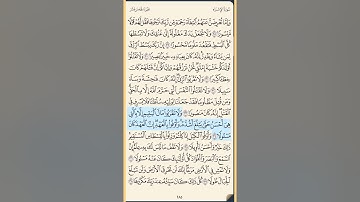 سُورَةُ الإِسْرَاءِ الجُزْءُ الخَامِسَ عَشَرَ
وَإِمَّا تُعْرِضَنَّ عَنْهُمُ ٱبْتِغَآءَ رَحْمَةٍ مِّن رَّبِّكَ تَرْجُوهَا فَقُل لَّهُمْ قَوْلًا
مَّيْسُورًا ٢٨ وَلَا تَجْعَلْ يَدَكَ مَغْلُولَةً إِلَىٰ عُنُقِكَ وَلَا تَبْسُطْهَا
كُلَّ ٱلْبَسْطِ فَتَقْعُدَ مَلُومًا مَّحْسُورًا ٢٩ إِنَّ رَبَّكَ يَبْسُطُ ٱلرِّزْقَ
لِمَن يَشَآءُ وَيَقْدِرُ إِنَّهُۥ كَانَ بِعِبَادِهِۦ خَبِيرًۢا بَصِيرًا ٣٠ وَلَا تَقْتُلُوٓا۟
أَوْلَٰدَكُمْ خَشْيَةَ إِمْلَٰقٍ نَّحْنُ نَرْزُقُهُمْ وَإِيَّاكُمْ إِنَّ قَتْلَهُمْ كَانَ
خِطْـًٔا كَبِيرًا ٣١ وَلَا تَقْرَبُوا۟ ٱلزِّنَىٰٓ إِنَّهُۥ كَانَ فَٰحِشَةً وَسَآءَ
سَبِيلًا ٣٢ وَلَا تَقْتُلُوا۟ ٱلنَّفْسَ ٱلَّتِى حَرَّمَ ٱللَّهُ إِلَّا بِٱلْحَقِّ
وَمَن قُتِلَ مَظْلُومًا فَقَدْ جَعَلْنَا لِوَلِيِّهِۦ سُلْطَٰنًا فَلَا يُسْرِف فِّى
ٱلْقَتْلِ إِنَّهُۥ كَانَ مَنصُورًا ٣٣ وَلَا تَقْرَبُوا۟ مَالَ ٱلْيَتِيمِ إِلَّا بِٱلَّتِى
هِىَ أَحْسَنُ حَتَّىٰ يَبْلُغَ أَشُدَّهُۥ وَأَوْفُوا۟ بِٱلْعَهْدِ إِنَّ ٱلْعَهْدَ كَانَ
مَسْـُٔولًا ٣٤ وَأَوْفُوا۟ ٱلْكَيْلَ إِذَا كِلْتُمْ وَزِنُوا۟ بِٱلْقِسْطَاسِ ٱلْمُسْتَقِيمِ
ذَٰلِكَ خَيْرٌ وَأَحْسَنُ تَأْوِيلًا ٣٥ وَلَا تَقْفُ مَا لَيْسَ لَكَ بِهِۦ عِلْمٌ إِنَّ
ٱلسَّمْعَ وَٱلْبَصَرَ وَٱلْفُؤَادَ كُلُّ أُو۟لَٰٓئِكَ كَانَ عَنْهُ مَسْـُٔولًا ٣٦
وَلَا تَمْشِ فِى ٱلْأَرْضِ مَرَحًا إِنَّكَ لَن تَخْرِقَ ٱلْأَرْضَ وَلَن تَبْلُغَ
ٱلْجِبَالَ طُولًا ٣٧ كُلُّ ذَٰلِكَ كَانَ سَيِّئُهُۥ عِندَ رَبِّكَ مَكْرُوهًا ٣٨